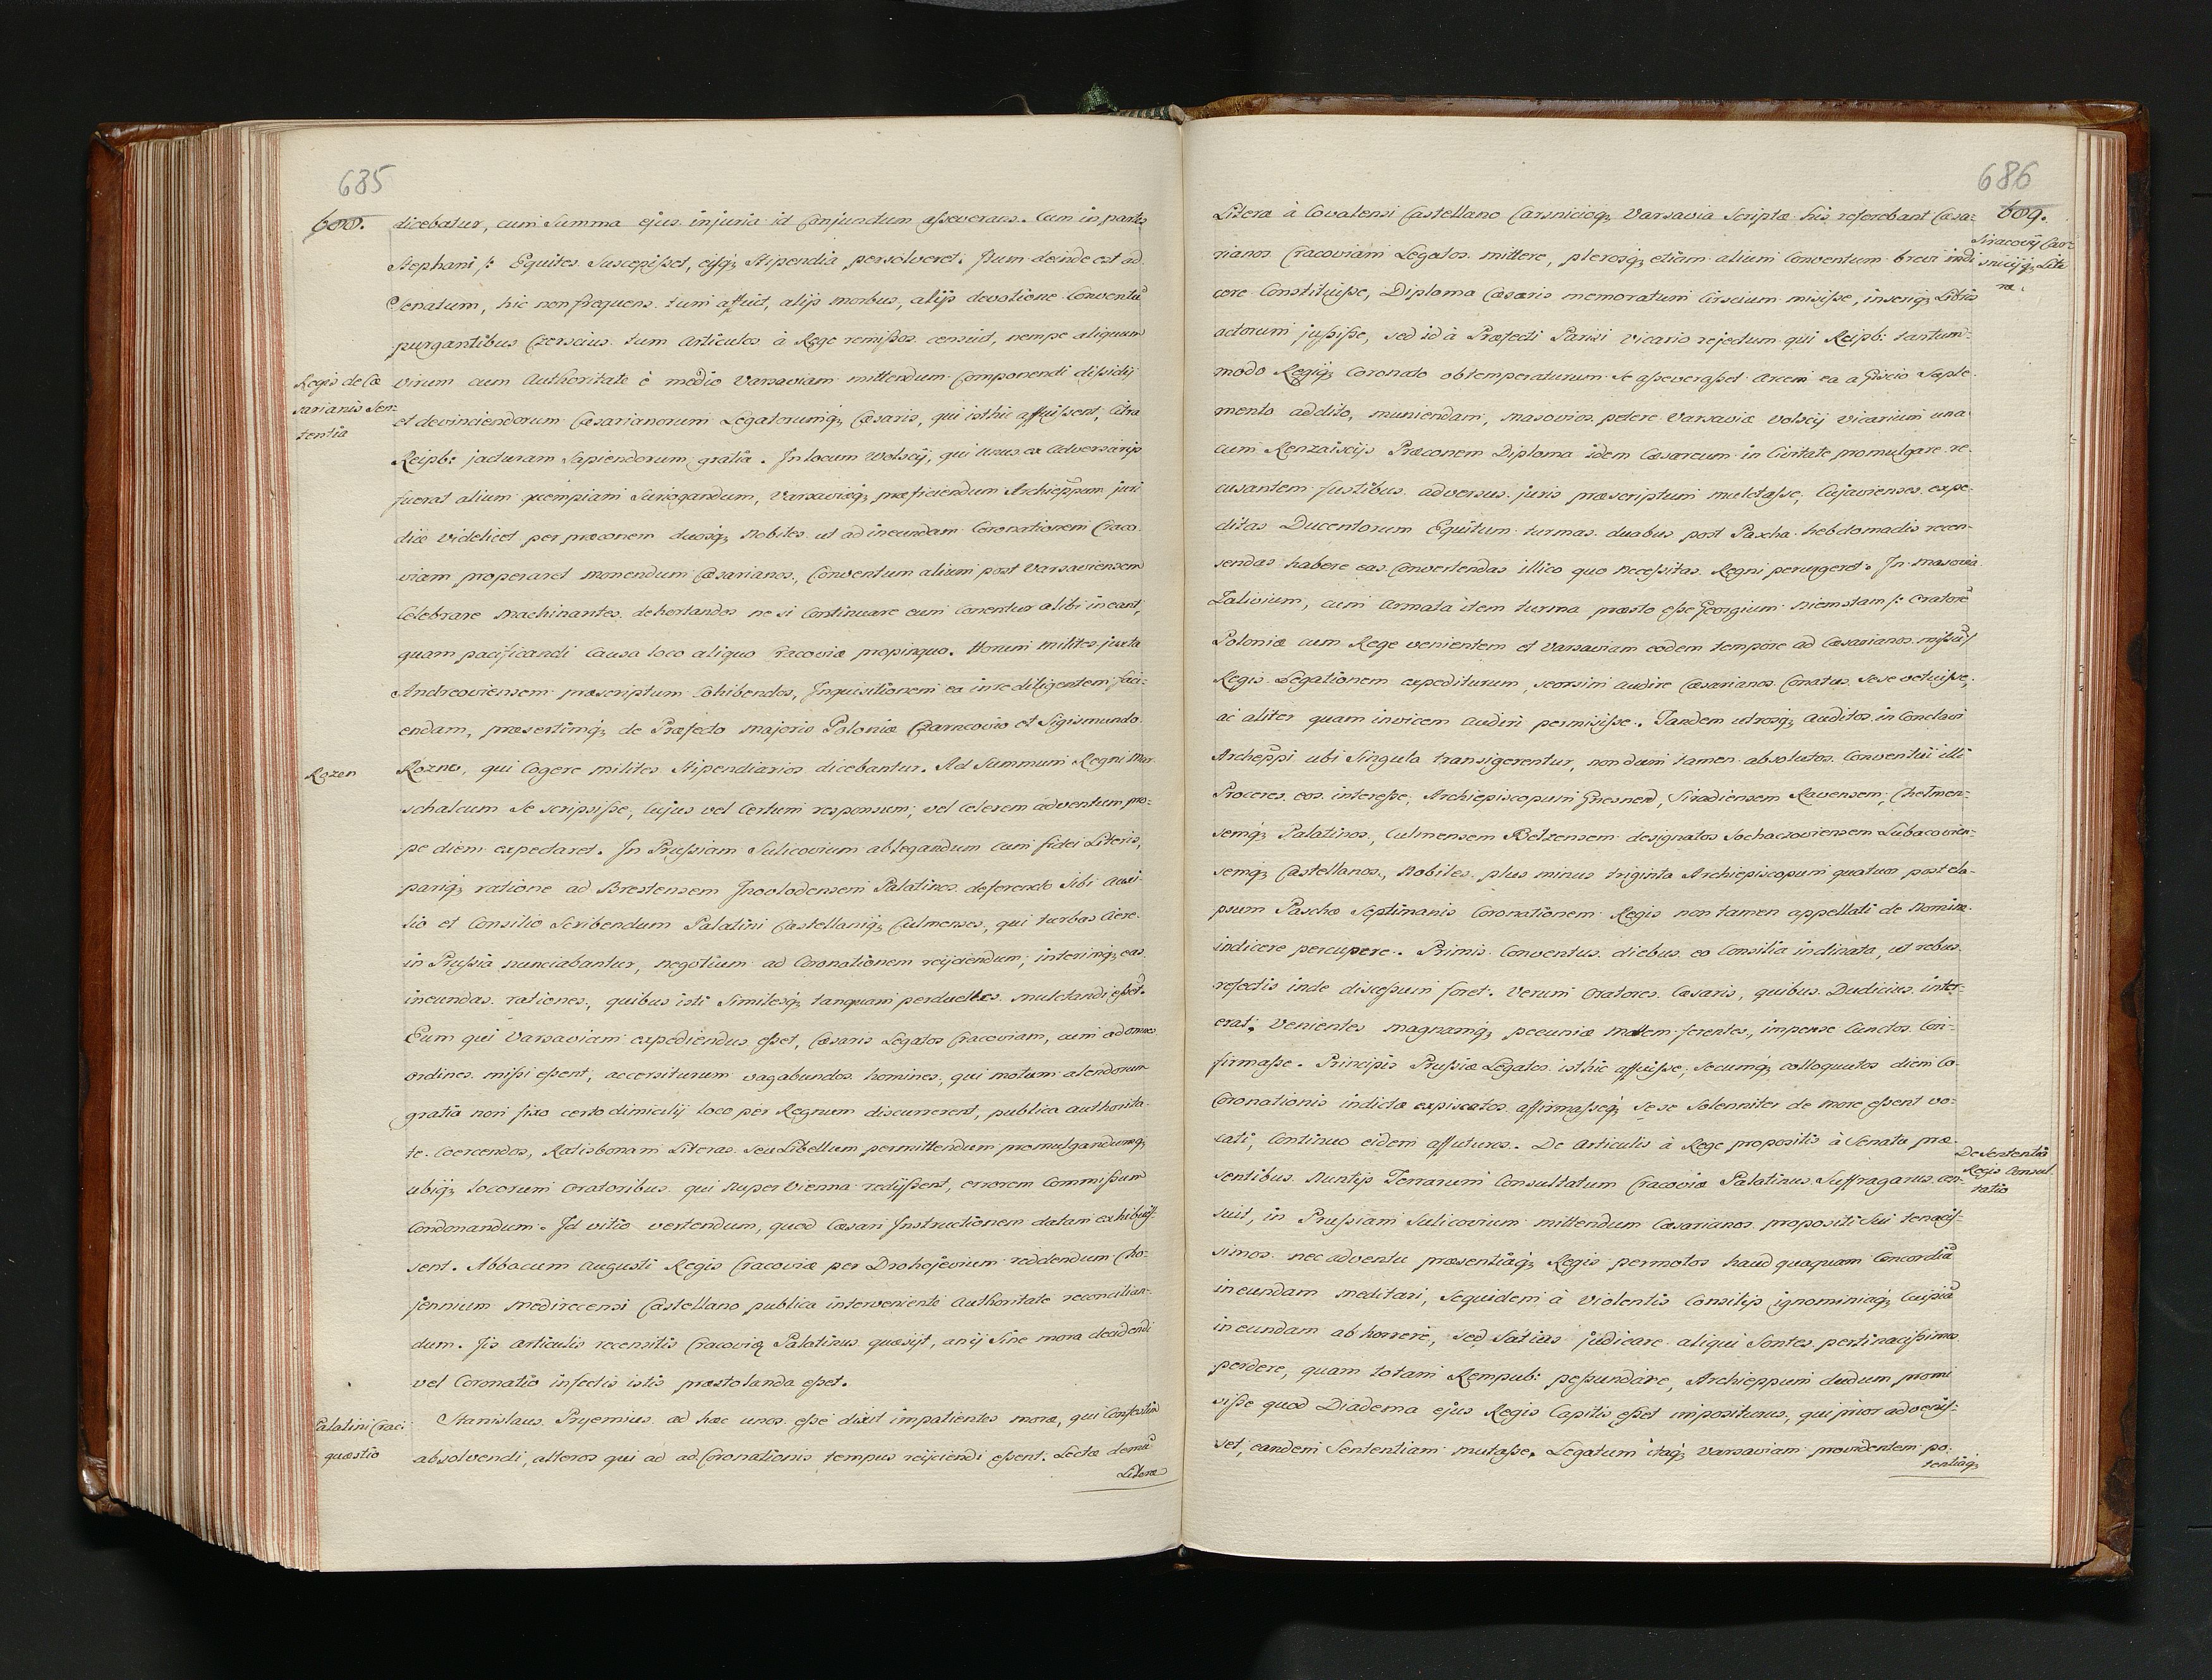 685
600.
dicebatur, cum Summa ejus injuria id Conjunctum asseverans. Cum in partes
Stephani /: Equites Suscepisset, eisq; Stipendia persolveret. Itum deinde est ad
Senatum, hic non frequens tum affuit, alijs morbus, alijs devotione Conventũ
purgantibus Czerscius tum Articulos à Rege remissos censuit, nempe aliquem
Regis de Cæ
sarianis Sen-
tentia
virum cum Authoritate è medio Varsaviam mittendum Componendi dissidij
et devinciendorum Cæsarianorum Legatorumq; Cæsaris, qui isthic affuissent, Citra
Reipb: jacturam Sapiendorum gratia. In locum Wolscij, qui unus ex Adversarijs
fuerat alium quempiam Surrogandum, Varsaviæq; præficiendum Archieppum juri
dice videlicet per præconem duosq; Nobiles ut ad ineundam Coronationem Craco-
viam properaret monendum Cæsarianos, Conventum alium post Varsaviensem
Celebrare machinantes dehortandos ne si Continuare eum Conentur alibi ineant,
quam pacificandi Causa loco aliquo Cracoviæ propinquo. Horum Milites juxta
Andreoviensem præscriptum Cohibendos, Inquisitionem ea in re diligentem faci-
endam, præsertimq; de Præfecto Majoris Poloniæ Czarncovio et Sigismundo
Rozen
Rozno, qui Cogere milites Stipendiarios dicebantur. Ad Summum Regni Mar
schalcum Se scripsisse, Cujus vel Certum responsum, vel Celerem adventum pro-
pe diem expectaret. In Prussiam Sulicovium ablegandum Cum fidei Literis,
pariq; ratione ad Brestensem Inovlodensem Palatinos deferendo Sibi Auxi-
lio et Consilio Scribendum Palatini Castellaniq; Culmenses, qui turbas Ciere
in Prussia nunciabantur, negotium ad Coronationem reijciendum, interimq; eas
ineundas rationes, quibus isti Similesq; tanquam perduelles mulctandi essẽt.
Eum qui Varsaviam expediendus esset, Cæsaris Legatos Cracoviam, cum ad omnes
ordines missi essent, accersiturum vagabundos homines, qui motum alendorum
gratia non fixo certo dimicilij loco per Regnum discurrerent, publica authorita-
te Coercendos, Ratisbonam Literas Seu Libellum permittendum promulgandumq;
ubiq; locorum Oratoribus qui Nuper Vienna redijssent, errorem Commissum
Condonandum. Id vitio vertendum, quod Cæsari Instructionem datam exhibuis-
sent. Abbacum Augusti Regis Cracoviæ per Drohojevium reddendum Cho-
jennium Medirecensi Castellano publica interveniente Authoritate reconcilian-
dum. Jis articulis recensitis Cracoviæ Palatinus quæsijt, an ij Sine mora decidendi
vel Coronatio infectis istis præstolanda esset.
Palatini Crac:
quæstio
Stanislaus Pryemius ad hæc unos esse dixit impatientes moræ, qui Confestim
absolvendi, alteros qui ad ad Coronationis tempus reijciendi essent. Lectæ demũ
Literæ
686
609.
Siracovij Car-
snicijq; Lite
ræ.
Literæ à Covalensi Castellano Carsnicioq; Varsavia Scriptæ his referebant Cæsa-
rianos Cracoviam Legatos mittere, plerosq; etiam alium Conventum brevi indi
cere Constituisse, Diploma Cæsaris memoratum Cirscium misisse, inseriq; Libris
actorum jussisse, sed id à Præfecti Parisi Vicario rejectum qui Reipb: tantum-
modo Regiq; Coronato obtemperaturum se asseverasset Arcem ea a Giscio Supple-
mento addito, muniendam, Masovios petere Varsaviæ Volscij vicarium una
cum Renzaiscijs Præconem Diploma idem Cæsareum in Civitate promulgare re-
cusantem fustibus adversus juris præscriptum mulctasse, Cujavienses expe-
ditas Ducentorum Equitum turmas duabus post Pascha hebdomadis recen-
sendas habere eas Convertendas illico quo Necessitas Regni perurgeret. In Masovia
Zalivium, cum Armata item turma præsto esse Georgium Niemstam /: Oratorẽ
Poloniæ cum Rege venientem et Varsaviam eodem tempore ad Cæsarianos missũ/
Regis Legationem expediturum, seorsim audire Cæsarianos Conatus sese vetuisse,
ac aliter quam invicem audiri permisisse. Tandem utrosq; Auditos in Conclavi
Archeppi ubi Singula transigerentur, nondum tamen absolutos Conventui illi
Proceres eos interesse, Archiepiscopum Gnesnen, Siradiensem Ravensem, Chelmen-
semq; Palatinos, Culmensem Belzensem designatos Sochaczoviensem Lubacovien-
semq; Castellanos, Nobiles plus minus triginta Archiepiscopum quatuor post ela-
psum Pascha Septimanis Coronationem Regis non tamen appellati de Nomine
indicere percupere. Primis Conventus diebus eo Consilia inclinata, ut rebus
refectis inde discessum foret. Verum Oratores Cæsaris, quibus Dudicius inter-
erat, Venientes magnamq; pecuniæ molem ferentes, impense Cunctos Con-
firmasse. Principis Prussiæ Legatos isthic affuisse, Secumq; colloquutos diem Co-
Coronationis indictæ expiscatos affirmasseq; sese Solenniter de more essent vo-
cati, Continuo eidem affuturos. De Articulis à Rege propositis à Senatu præ-
De Sententia
Regis Consul
tatio
sentibus Nuntijs Terrarum Consultatum Cracoviæ Palatinus Suffragarus cen-
suit, in Prussiam Sulicovium mittendum Cæsarianos propositi Sui tenacis-
simos nec adventu præsentiaq; Regis permotos haud quaquam Concordiã
ineundam Meditari, Sequidem à violentis Consilijs ignominiaq; Cuipiã
ineundam abhorrere, sed Satius judicare aliqui Sontes pertinacissimos
perdere, quam totam Rempub: pessundare, Archieppum dudum promi
sisse quod Diadema ejus Regis Capitis esset impositurus, qui prior advenis-
set, eandem Sententiam mutasse, Legatum itaq; Varsaviam providentem po-
tentiaq;